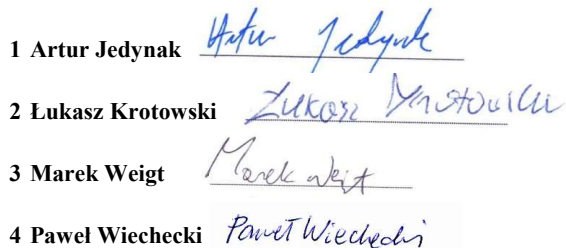 1 Artur Jedynak Artur Jedynak
2 Łukasz Krotowski Łukasz Krotowski
3 Marek Weigt Marek Weigt
4 Paweł Wiechecki Paweł Wiechecki